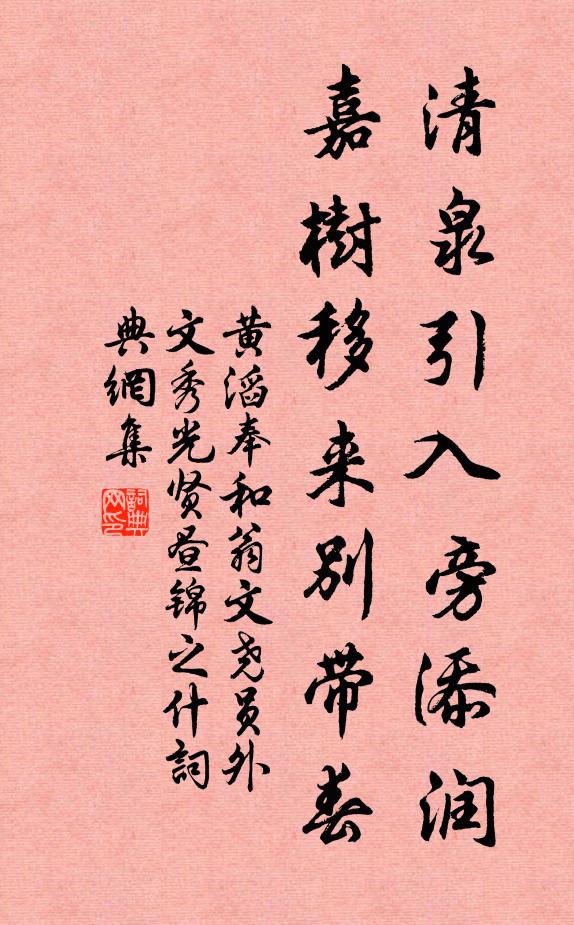 清泉引入旁添润
嘉樹移来别带春
黄滔奉和翁文尧员外
文秀光贤昼锦之什詞
典網集
詞典
网印